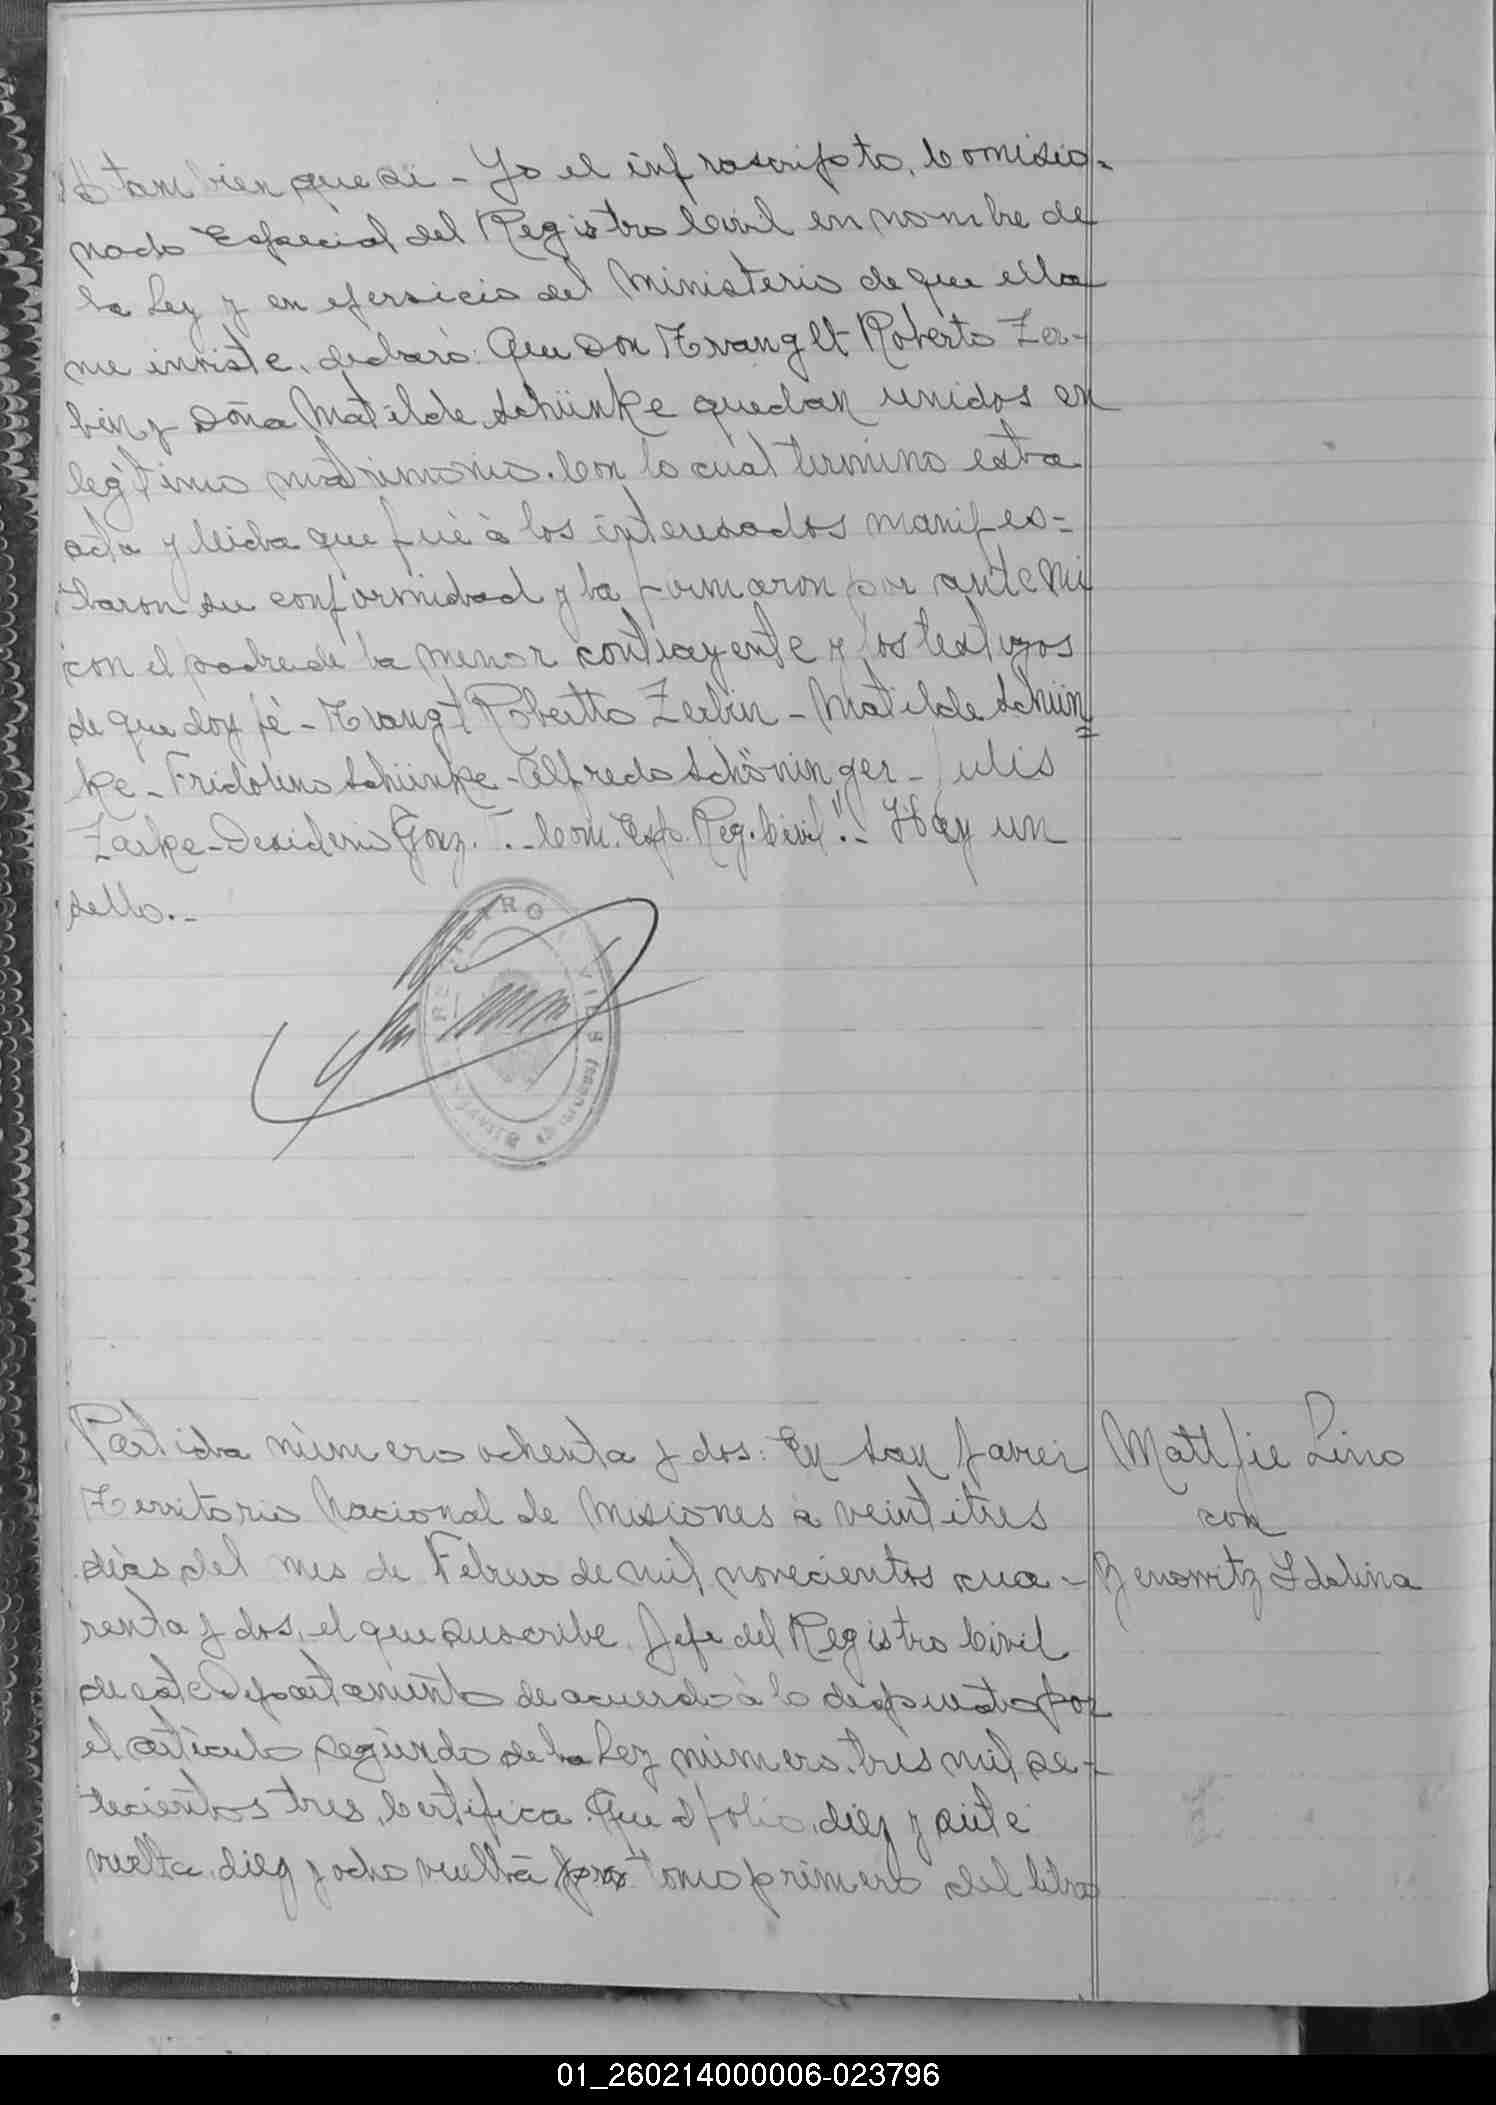 tambien que si - Yo el infrascripto, Comisio=
nado Especial del Registro Civil en nombre de
la Ley y en ejersicio del Ministerio de que ella
me inviste, declaró: Que Don Trangtt Roberto Zer-
bin y Doña Matilde Schünke quedan unidos en
legítimo matrimonio. Con lo cual termino esta
acta y leida que fué à los interesados manifes=
taron su conformidad y la firmaron por ante mi
con el padre de la menor contrayente y los textigos
de que doy fé - Trangt Robertto Zerbin - Matilde Schün=
ke - Fridolino Schünke - Alfredo Schöninger - Julis
Zarke - Desiderio Gonz. T. - Com. Esp. Reg. Civil". - Hay un
sello. -
REGISTRO CIVIL
Partida número ochenta y dos: En San Javier
Territorio Nacional de Misiones à veintitres
dias del mes de Febrero de mil novecientos cua-
renta y dos, el que suscribe, Jefe del Registro Civil
de este Departamento de acuerdo à lo despuesto por
el artículo segundo de la Ley número tres mil se-
tecientos tres, Certifica: Que à folio, diez y siete
vuelta, diez y ocho vuelta tomo primero del libro
Mattjie Lino
con
Zenowitz Idalina
01_260214000006-023796